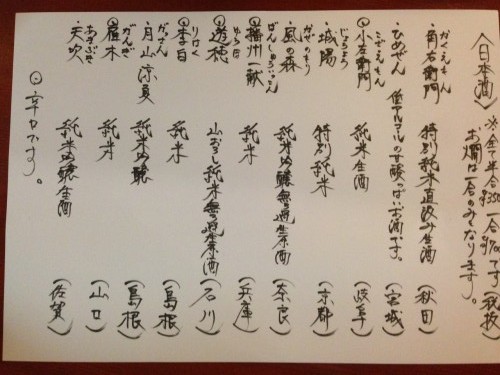 〈日本酒〉 ※全て半合¥350 一合¥700です(税抜)
お燗は一合のみとなります。
・角右衛門 特別純米直汲み生酒 (秋田)
かくえもん
・ひめぜん 低アルコールの甘酸っぱいお酒です。 (宮城)
⊙小左衛門 純米生酒 (岐阜)
こざえもん
・城陽 特別純米 (京都)
じょうよう
・風の森 純米吟醸無ろ過生原酒 (奈良)
かぜのもり
⊙播州一献 純米 (兵庫)
ばんしゅういっこん
⊙遊穂 山おろし純米無ろ過生原酒 (石川)
ゆうほ
⊙李白 純米 (島根)
りはく
・月山 涼夏 純米吟醸 (島根)
がっさん
⊙雁木 純米 (山口)
がんぎ
・天吹 純米吟醸生酒 (佐賀)
あまぶき
⊙辛口です。